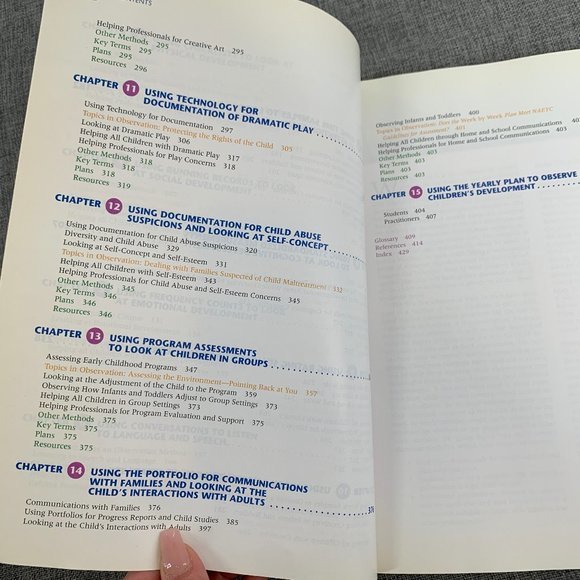 CONTENTS
Helping Professionals for Creative Art 295
Other Methods 295
Key Terms 295
Plans 295
Resources 296
CHAPTER 11 USING TECHNOLOGY FOR
DOCUMENTATION OF DRAMATIC PLAY
Using Technology for Documentation 297
Topics in Observation: Protecting the Rights of the Child 305
Looking at Dramatic Play 306
Helping All Children with Dramatic Play 317
Helping Professionals for Play Concerns 318
Other Methods 318
Key Terms 318
Plans 318
Resources 319
CHAPTER 12 USING DOCUMENTATION FOR CHILD ABUSE
SUSPICIONS AND LOOKING AT SELF-CONCEPT
Using Documentation for Child Abuse Suspicions 320
Diversity and Child Abuse 329
Looking at Self-Concept and Self-Esteem 331
Topics in Observation: Dealing with Families Suspected of Child Maltreatment 332
Helping All Children with Self-Esteem 343
Helping Professionals for Child Abuse and Self-Esteem Concerns 345
Other Methods 345
Key Terms 346
Plans 346
Resources 346
CHAPTER 13 USING PROGRAM ASSESSMENTS
TO LOOK AT CHILDREN IN GROUPS
Assessing Early Childhood Programs 347
Topics in Observation: Assessing the Environment—Pointing Back at You 357
Looking at the Adjustment of the Child to the Program 359
Observing How Infants and Toddlers Adjust to Group Settings 373
Helping All Children in Group Settings 373
Helping Professionals for Program Evaluation and Support 375
Other Methods 375
Key Terms 375
Plans 375
Resources 375
CHAPTER 14 USING THE PORTFOLIO FOR COMMUNICATIONS
WITH FAMILIES AND LOOKING AT THE
CHILD'S INTERACTIONS WITH ADULTS 376
Communications with Families 376
Using Portfolios for Progress Reports and Child Studies 385
Looking at the Child's Interactions with Adults 397
Observing Infants and Toddlers 400
Topics in Observation: Does the Week by Week Plan Meet NAEYC
Guidelines for Assessment? 401
Helping All Children through Home and School Communications 402
Helping Professionals for Home and School Communications 403
Other Methods 403
Key Terms 403
Plans 403
Resources 403
CHAPTER 15 USING THE YEARLY PLAN TO OBSERVE
CHILDREN'S DEVELOPMENT
Students 404
Practitioners 407
Glossary 409
References 414
Index 429